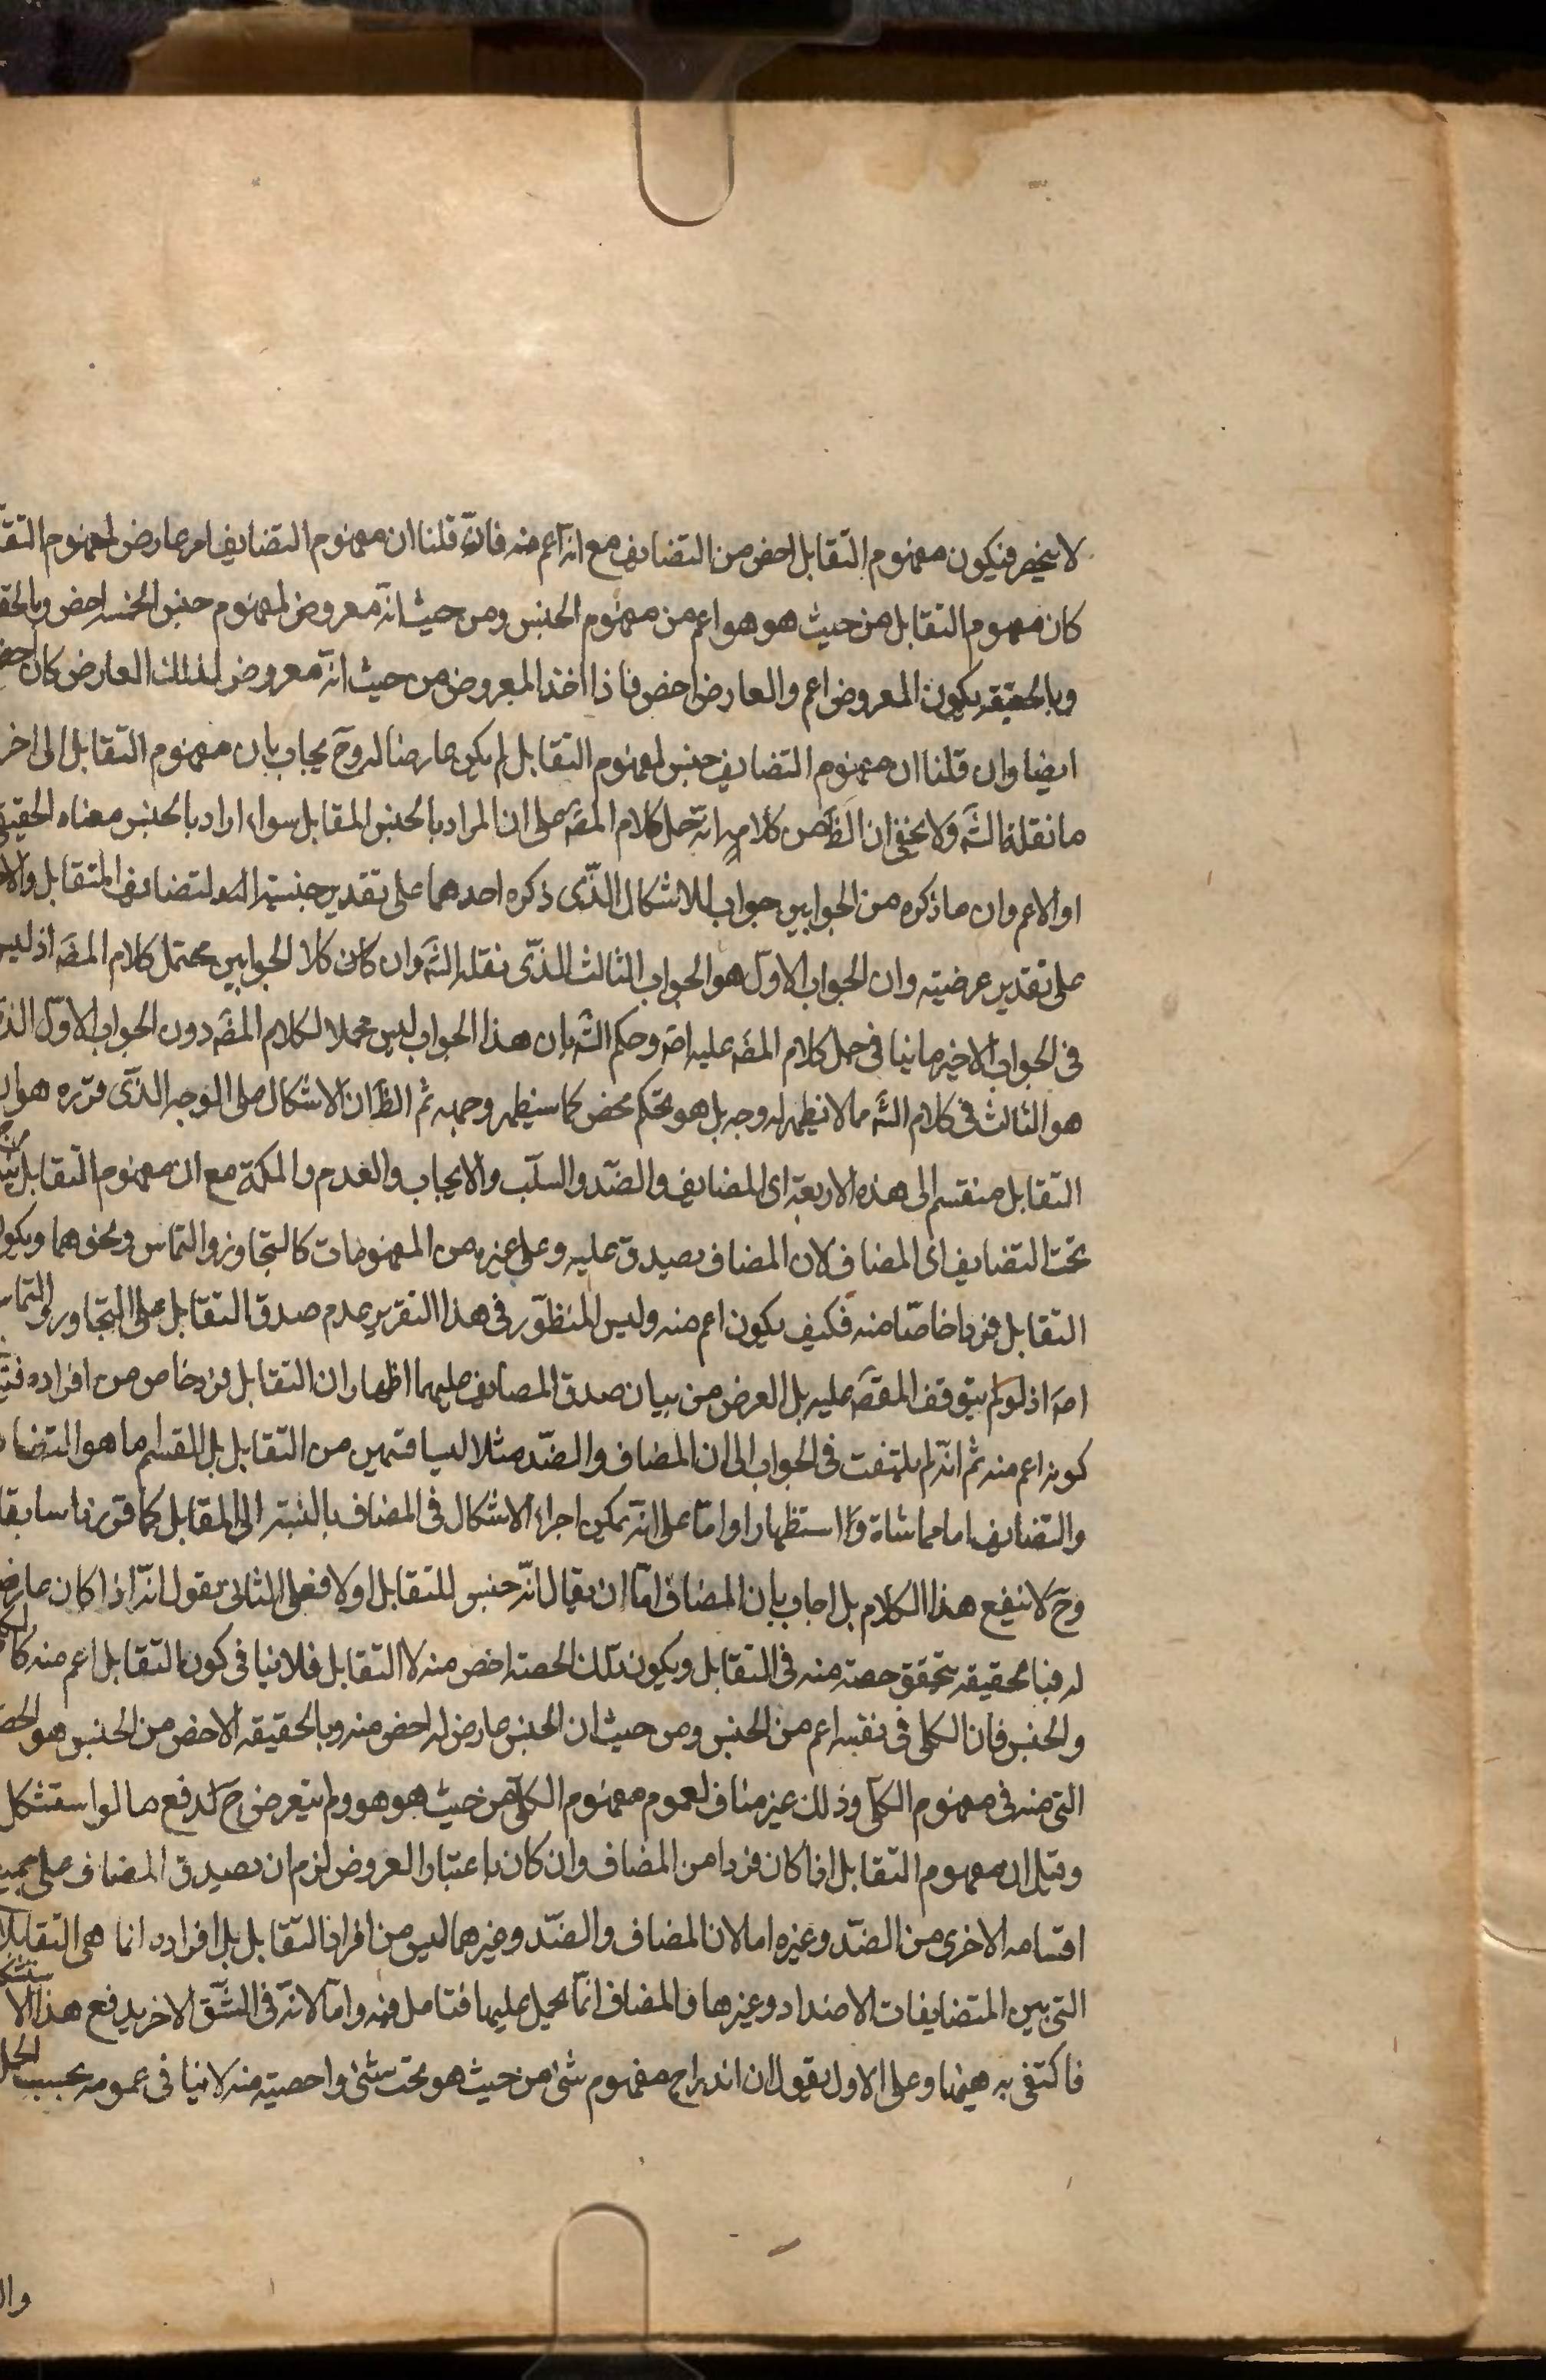 لا ينحصر فيكون مفهوم التقابل اخص من التضايف مع انه اعم منه فان قلنا ان مفهوم التضايف امر عارض لمفهوم
كان مفهوم التقابل من حيث هو هو اعم من مفهوم الجنس ومن حيث انه معروض لمفهوم جنس الخمسه اخص
وبالحقيقه يكون المعروض اعم والعارض اخص فاذا اخذ المعروض من حيث انه معروض لذلك العارض كان اخص
ايضا وان قلنا ان مفهوم التضايف جنس لمفهوم التقابل لم يكن عارضا له وح يجاب بان مفهوم التقابل الى اخر
ما نقله الشه ولا يخفى ان الظ من كلامه انه حمل كلام المصه على ان المراد بالجنس المقابل سواء اراد بالجنس معناه
او الاعم وان ما ذكره من الجوابين جواب للاشكال الذى ذكره احدهما على تقدير جنسية التضايف للتقابل
على تقدير عرضيته وان الجواب الاول هو الجواب الثالث الذى نقله الشه وان كان كلا الجوابين محتمل كلام المصه اذ ليس
فى الجواب الاخير ما ينافى حمل كلام المصه عليه اصه وحكم الشه بان هذا الجواب ليس محملا لكلام المصه دون الجواب الاول
هو الثالث فى كلام الشه مما لا يظهر له وجه بل هو تحكم محض كما سيظهر وجهه ثم الظ ان الاشكال على الوجه الذى قرره هو
التقابل منقسم الى هذه الاربعة اى المضايف والضد والسلب والايجاب والعدم والملكة مع ان مفهوم التقابل
تحت التضايف اى المضاف لان المضاف يصدق عليه وعلى غيره من المفهومات كالتجاوز والتماس ونحوهما
التقابل فردا خاصا منه فكيف يكون اعم منه وليس المنظور فى هذا التقرير عدم صدق التقابل على التجاور والتماس
اصه اذ لو لم يتوقف المقصه عليه بل الغرض من بيان صدق المضايف عليهما اظهار ان التقابل فرد خاص من افراده
كونه اعم منه ثم انه لم يلتفت فى الجواب الى ان المضاف والضد مثلا ليسا قسمين من التقابل بل القسم ما هو
والتضايف اما مماشاة او استظهارا واما على انه يمكن اجراء الاشكال فى المضاف بالنسبة الى المقابل كما قررنا سابقا
وح لا ينفع هذا الكلام بل اجاب بان المضاف اما ان يقال انه جنس للتقابل اولا فعلى الثانى يقول انه اذا كان
له تحقق حصته منه فى التقابل ويكون تلك الحصته اخص منه لا التقابل فلا ينافى كون التقابل اعم منه
والجنس فان الكلى فى نفسه اعم من الجنس ومن حيث ان الجنس عارض له اخص منه وبالحقيقه الاخص من الجنس هو
التى منه فى مفهوم الكلى وذلك غير مناف لعموم مفهوم الكلى من حيث هو هو ولم يتعرض ح لدفع ما لو استشكل
وقيل ان مفهوم التقابل اذا كان فردا من المضاف وان كان باعتبار العروض لزم ان يصدق المضاف على
اقسامه الاخرى من الضد وغيره اما لان المضاف والضد وغيرهما ليس من افراد التقابل بل افراده انما هى
التى بين المتضايفات الاضداد وغيرها والمضاف انما يحمل عليها فتامل فيه واما لانه فى الشق الاخر يدفع هذا
فاكتفى به هيهنا وعلى الاول يقول ان اندراج مفهوم شئ من حيث هو تحت شئ واخصيته منه لا ينافى عمومه بحسب